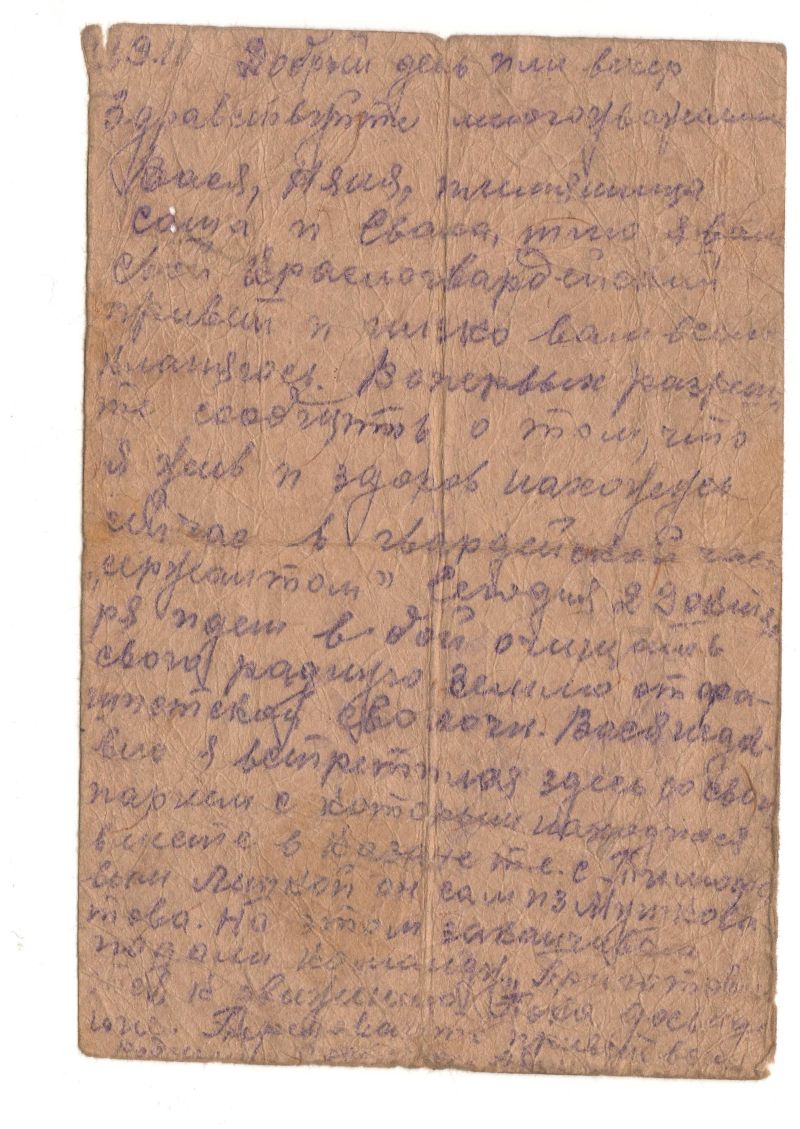 Добрый день или вечер
Здравствуйте многоуважаемы
Вася, Няня, племянница
Саша и Свата, шлю я вам
свой Красногвардейский
привет и низко вам всем
кланяюсь. Вопервых разреши
те сообщить о том, что
я жив и здоров нахожусь
сейчас в гвардейской час
„сержантом” Сегодня 29 октяб
ря идем в бой очищать
свою радную землю от фа-
шистской сволочи. Вася неда-
вно я встретился здесь со свои
парнем с которым находился
вместе в Казане т.е. с
он сам из
това. На этом заканчиваю
подали команду „Приготови
ться к движению” Пока досвида
ние. Передавайте привет всем